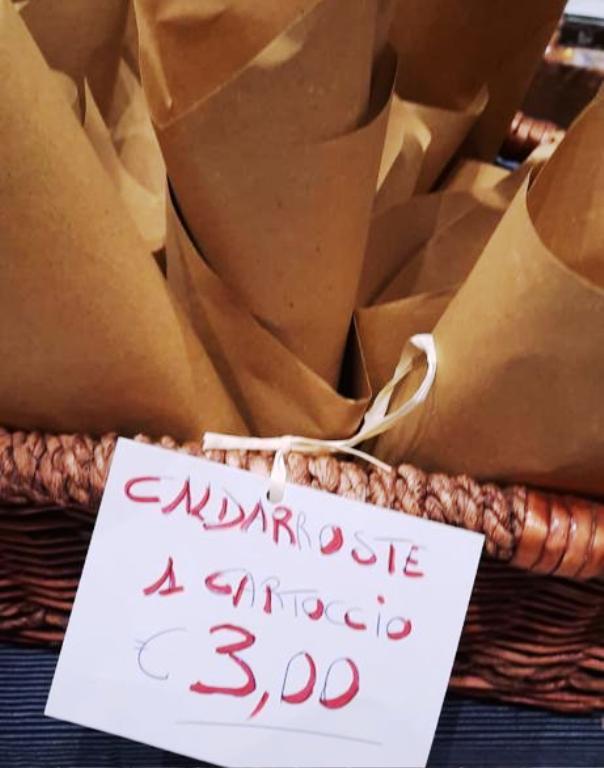 CALDARROSTE
1 CARTOCCIO
€ 3,00